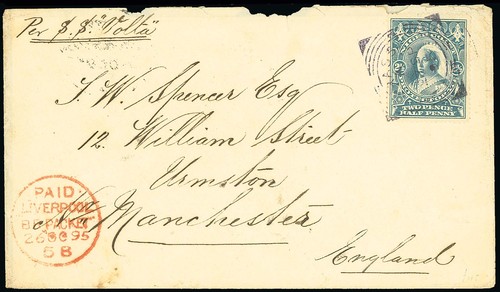 Per S.S. "Volta"
J. W. Spencer Esq
12, William Street
Urmston
Nr Manchester
England
TWO PENCE
HALF PENNY
PAID
LIVERPOOL
BR PACKET
26 OC 95
5 B